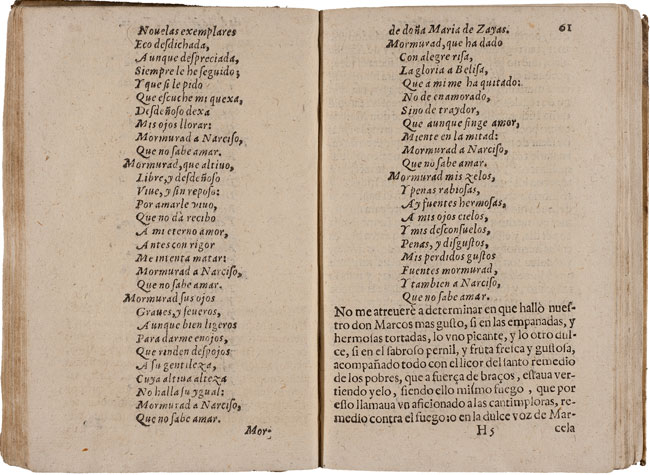 Nouelas exemplares
Eco desdichada,
Aunque despreciada,
Siempre le he seguido;
Y que si le pido
Que escuche mi quexa,
Desdeñoso dexa
Mis ojos llorar:
Mormurad a Narciso,
Que no sabe amar.
Mormurad, que altiuo,
Libre, y desdeñoso
Viue, y sin reposo:
Por amarle viuo,
Que no dà recibo
A mi eterno amor,
Antes con rigor
Me intenta matar:
Mormurad a Narciso,
Que no sabe amar.
Mormurad sus ojos
Graues, y seueros,
Aunque bien ligeros
Para darme enojos,
Que rinden despojos
A su gentileza,
Cuya altiua alteza
No halla su ygual:
Mormurad a Narciso,
Que no sabe amar.
Mor-
de doña Maria de Zayas. 61
Mormurad, que ha dado
Con alegre risa,
La gloria a Belisa,
Que a mi me ha quitado:
No de enamorado,
Sino de traydor,
Que aunque finge amor,
Miente en la mitad:
Mormurad a Narciso,
Que no sabe amar.
Mormurad mis zelos,
Y penas rabiosas,
Ay fuentes hermosas,
A mis ojos cielos,
Y mis desconsuelos,
Penas, y disgustos,
Mis perdidos gustos
Fuentes mormurad,
Y tambien a Narciso,
Que no sabe amar.
No me atreuerè a determinar en que hallò nues-
tro don Marcos mas gusto, si en las empanadas, y
hermosas tortadas, lo vno picante, y lo otro dul-
ce, si en el sabroso pernil, y fruta fresca y gustosa,
acompañado todo con el licor del santo remedio
de los pobres, que a fuerça de braços, estaua ver-
tiendo yelo, siendo ello mismo fuego, que por
esso llamaua vn aficionado a las cantimploras, re-
medio contra el fuego: o en la dulce voz de Mar-
H5 cela